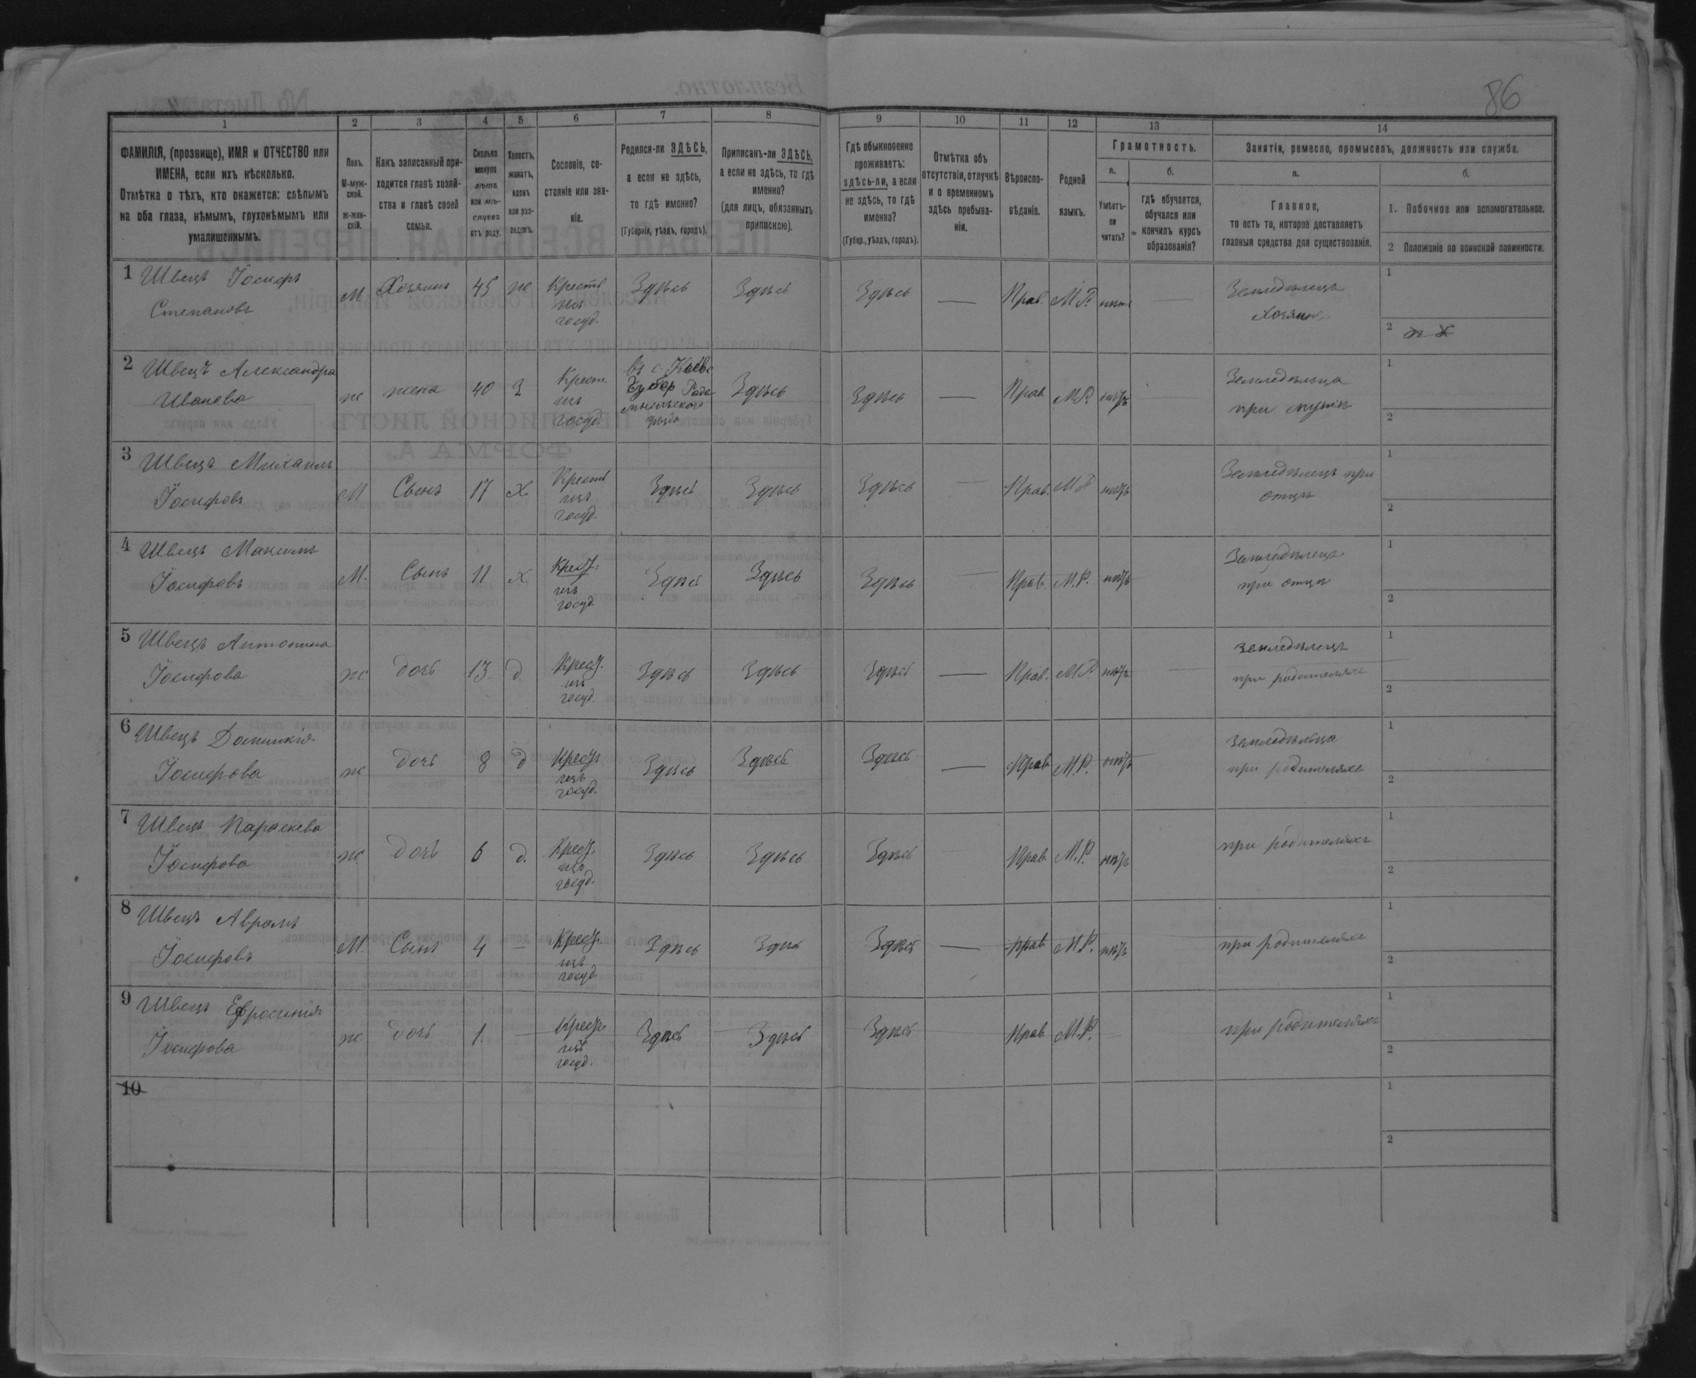 86
1 2 3 4 5 6 7 8 9 10 11 12 13 14
ФАМИЛІЯ, (прозвище), ИМЯ и ОТЧЕСТВО или
ИМЕНА, если ихъ нѣсколько.
Отмѣтка о тѣхъ, кто окажется: слѣпымъ
на оба глаза, нѣмымъ, глухонѣмымъ или
умалишеннымъ.
Полъ.
М-муж-
ской.
Ж-жен-
скій.
Какъ записанный при-
ходится главѣ хозяй-
ства и главѣ своей
семьи.
Сколько
минуло
лѣтъ
или мѣ-
сяцевъ
отъ роду.
Холостъ,
женатъ,
вдовъ
или раз-
веденъ.
Сословіе, со-
стояніе или зва-
ніе.
Родился-ли ЗДѢСЬ,
а если не здѣсь,
то гдѣ именно?
(Губернія, уѣздъ, городъ).
Приписанъ-ли ЗДѢСЬ,
а если не здѣсь, то гдѣ
именно?
(для лицъ, обязанныхъ
припискою).
Гдѣ обыкновенно
проживаетъ:
здѣсь-ли, а если
не здѣсь, то гдѣ
именно?
(Губер., уѣздъ, городъ).
Отмѣтка объ
отсутствіи, отлучкѣ
и о временномъ
здѣсь пребыва-
ніи.
Вѣроиспо-
вѣданіе.
Родной
языкъ.
Грамотность.
а.
Умѣетъ-
ли
читать?
б.
Гдѣ обучается,
обучался или
кончилъ курсъ
образованія?
Занятіе, ремесло, промыселъ, должность или служба.
а.
Главное,
то есть то, которое доставляетъ
главныя средства для существованія.
б.
1. Побочное или вспомогательное.
2 Положеніе по воинской повинности.
1 Швецъ Іосифъ
Степановъ
М. Хозяинъ 45 ж Крест.
изъ
госуд.
Здѣсь Здѣсь Здѣсь — Прав. М.Р. нѣтъ —
Земледѣлецъ
Хозяинъ
1
2
2 Швецъ Александра
Иванова
ж жена 40 З Крест.
изъ
госуд.
Въ с.
Радо
мысльского
уѣзда
Здѣсь Здѣсь — Прав. М.Р. нѣтъ
Земледѣлица
при мужѣ
1
2
3 Швецъ Михаилъ
Іосифовъ
М Сынъ 17 Х Крест.
изъ
госуд.
Здѣсь Здѣсь Здѣсь — Прав. М.Р. нѣтъ
Земледѣлецъ при
отцѣ
1
2
4 Швецъ Максимъ
Іосифовъ
М. Сынъ 11 х Крест.
изъ
госуд.
Здѣсь Здѣсь Здѣсь — Прав. М.Р. нѣтъ
Земледѣлецъ
при отцѣ
1
2
5 Швецъ Антонина
Іосифова
ж дочь 13 д Крест.
изъ
госуд.
Здѣсь Здѣсь Здѣсь — Прав. М.Р. нѣтъ —
Земледѣлецъ
при родителяхъ
1
2
6 Швецъ Домникія
Іосифова
ж дочь 8 д Крест.
изъ
госуд.
Здѣсь Здѣсь Здѣсь — Прав. М.Р. нѣтъ —
Земледѣлица
при родителяхъ
1
2
7 Швецъ Параскева
Іосифова
ж дочь 6 д. Крест.
изъ
госуд.
Здѣсь Здѣсь Здѣсь — Прав. М.Р. нѣтъ
при родителяхъ
1
2
8 Швецъ Аврамъ
Іосифовъ
М. Сынъ 4 — Крест.
изъ
госуд.
Здѣсь Здѣсь Здѣсь — Прав. М.Р. нѣтъ
при родителяхъ
1
2
9 Швецъ Ефросинія
Іосифова
ж дочь 1 — Крест.
изъ
госуд.
Здѣсь Здѣсь Здѣсь Прав. М.Р.
при родителяхъ
1
2
10
1
2